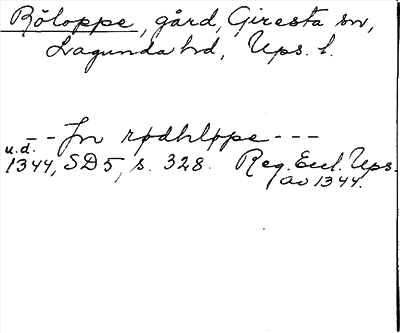 Röloppe, gård, Giresta sn,
Lagunda hd, Ups. l.
- - Jn rødhløpe - - -
u.d.
1344, SD5, s. 328. Reg. Eccl. Ups.
av 1344.